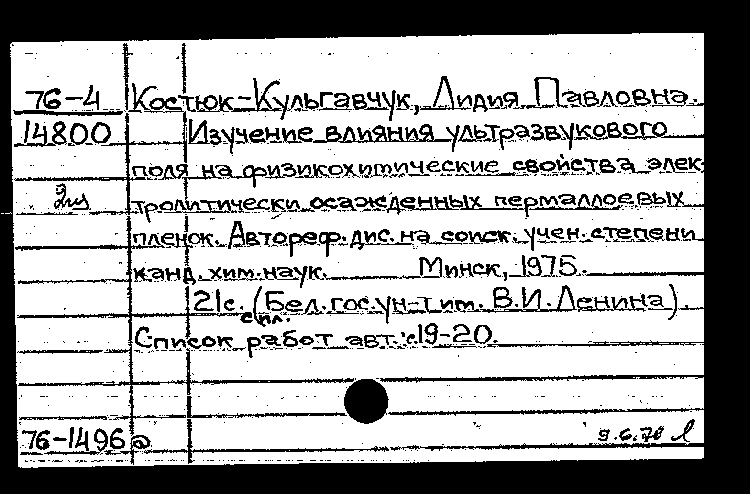 76-4 Костюк-Кульгавчук, Лидия Павловна.
14800 Изучение влияния ультразвукового
поля на физикохимические свойства элек-
2 тролитически осажденных пермаллоевых
пленок. Автореф. дис. на соиск. учен. степени
канд. хим. наук. Минск, 1975.
21с. с ил. (Бел. гос. ун-т им. В.И. Ленина).
Список работ авт.: с.19-20.
76-1496 а